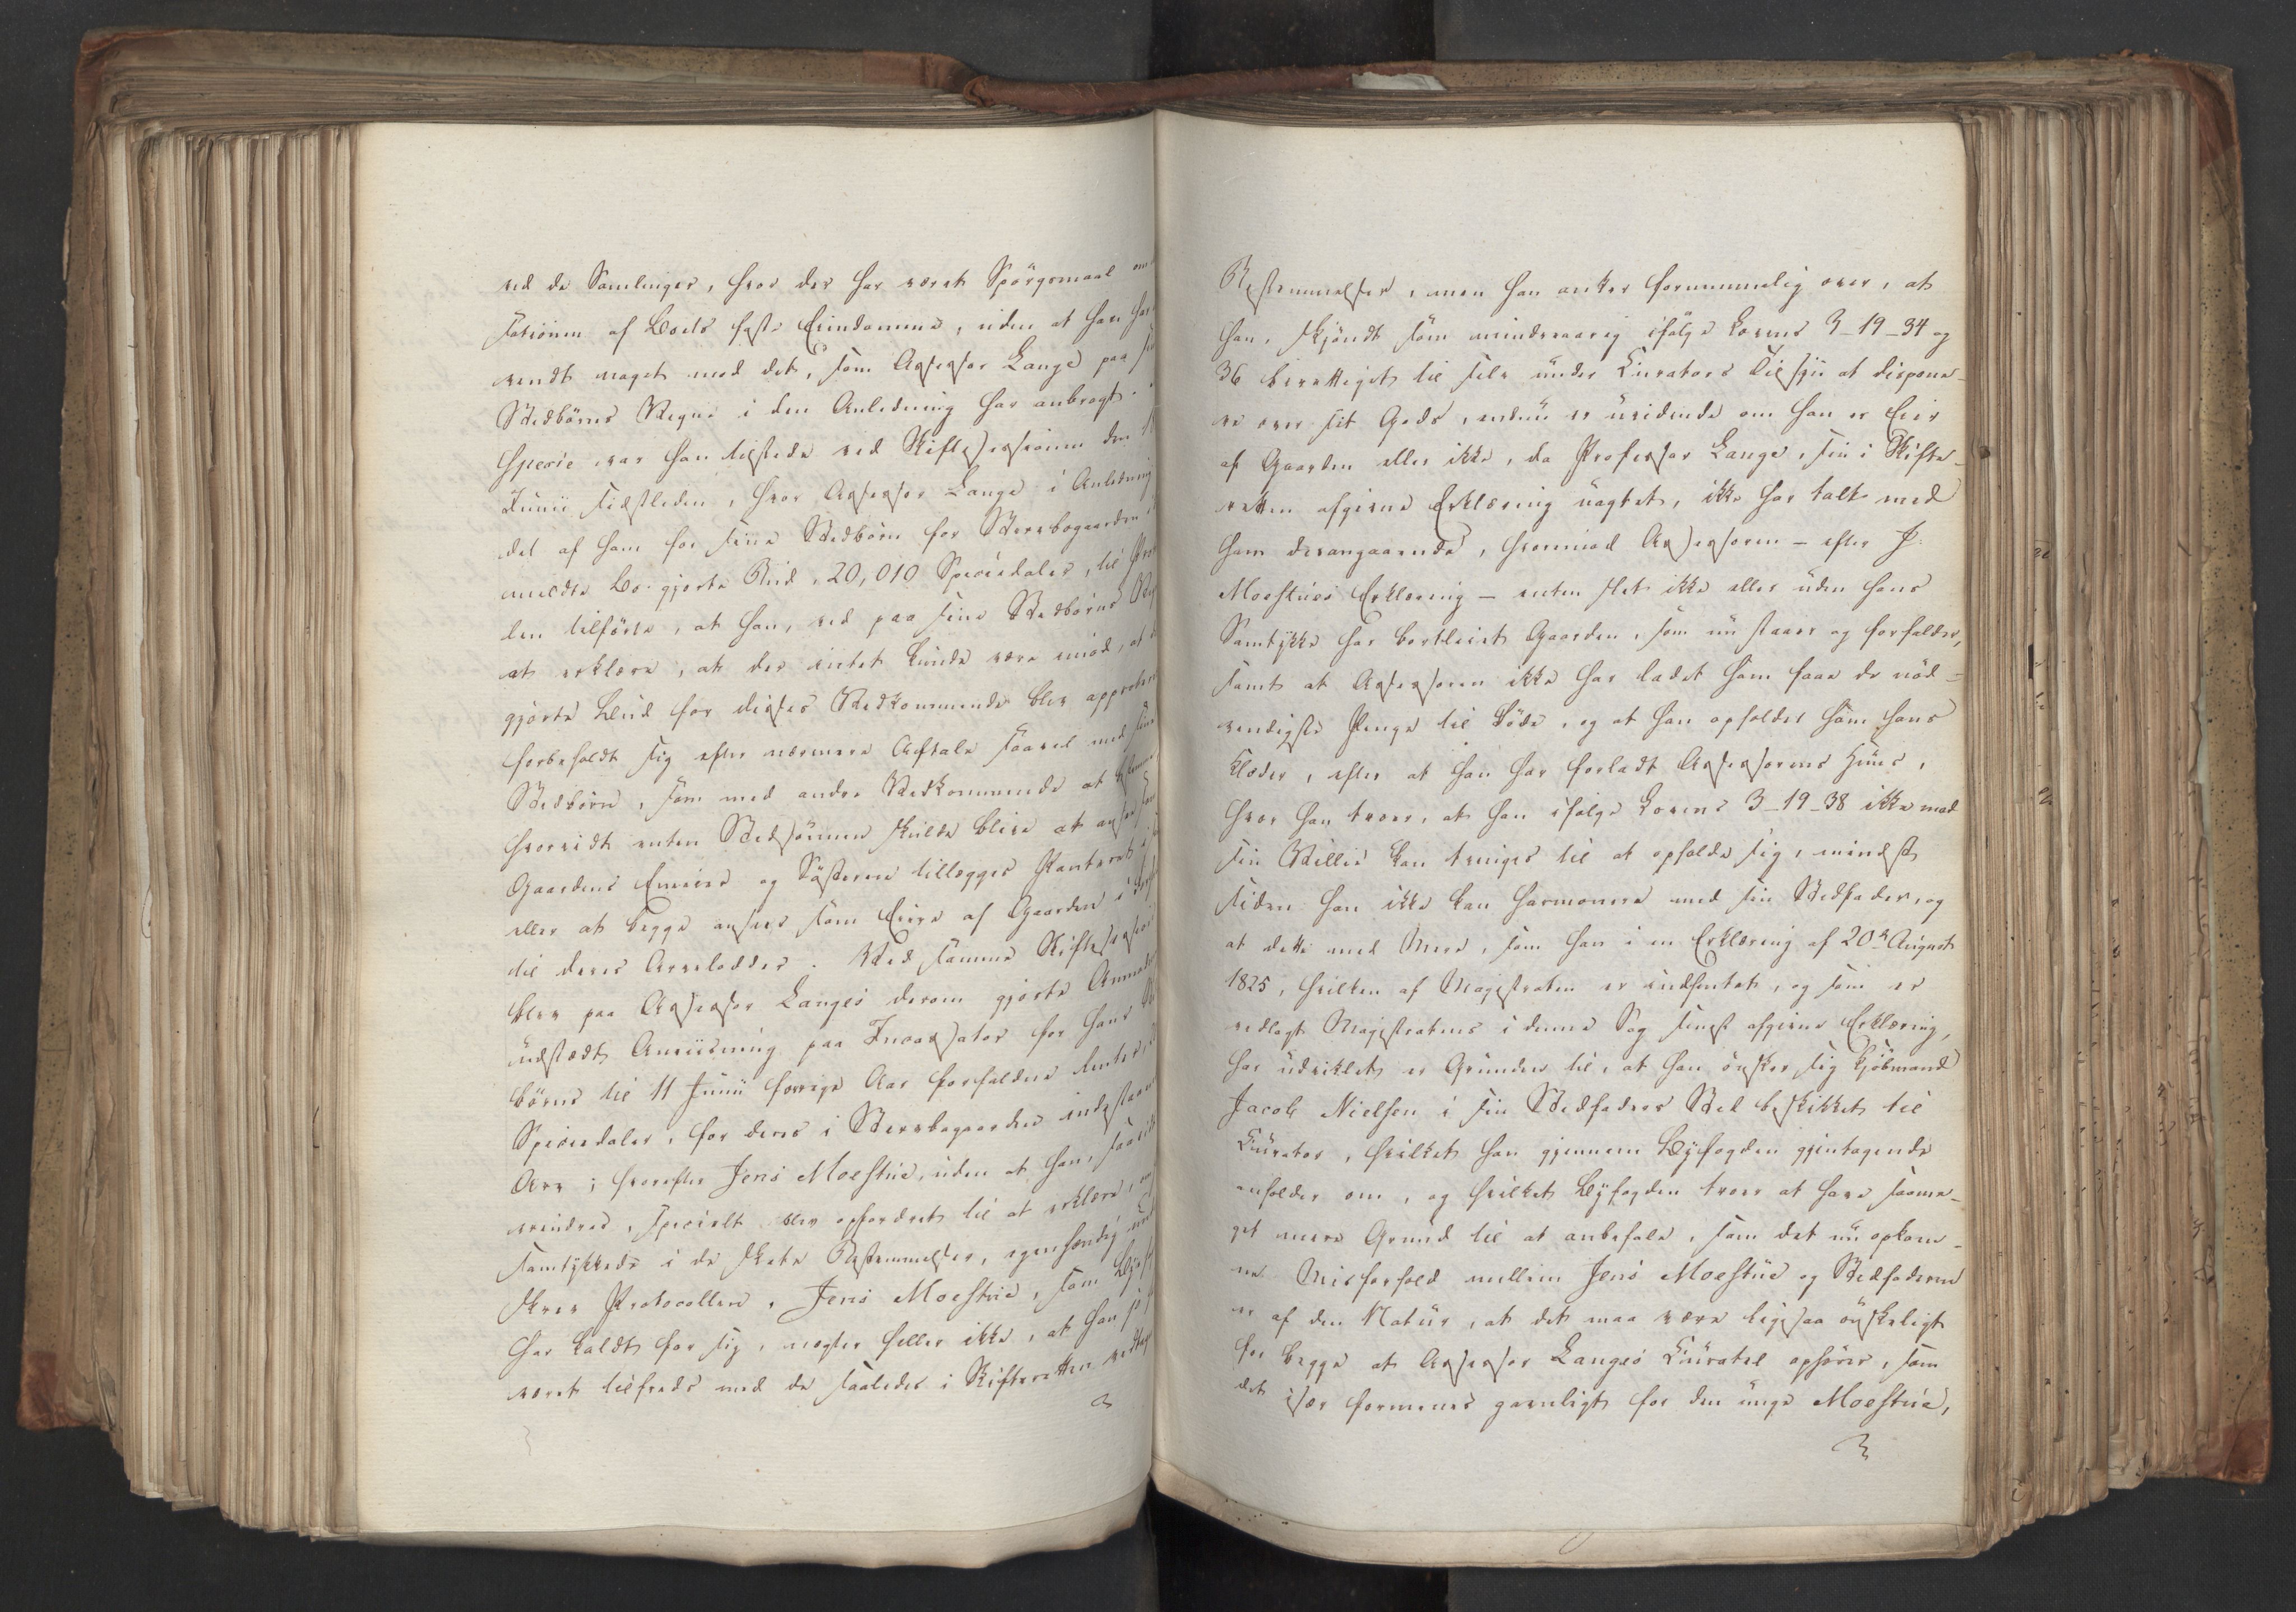 ved de Samlinger, hvor der har været Spörgsmaal om
tationen af Boets faste Eiendomme, uden at han har
vendt noget mod det, som Assessor Lange paa
Stedbörns Vegne i den Anledning har anbragt.
Specie var han tilstede ved Skiftesessionen den
Junii sidstleden, hvor Assessor Lange i Anledning
det af ham for sine Stedbörn for Stervbogaarden
meldte Bo gjorte Bud, 20,010 Speciedaler, til
len tilförte, at han, ved paa sine Stedbörns
at erklære, at der intet kunde være imod, at
gjorte Bud for disses Vedkommende blev
forbeholdt sig efter nærmere Aftale saavel med sine
Stedbörn, som med andre Vedkommende at
hvorvidt enten Stedsönnen skulde blive at ansee som
Gaardens Eneeier og Söstrene tillægges Panteret i
eller at begge ansees som Eiere af Gaarden i
til deres Arvelodder. Ved samme Skiftesession
blev paa Assessor Langes derom gjorte
udstædt Anviisning paa Incassator for hans
börns til 11 Junii forrige Aar forfaldne Renter,
Speciesdaler, for deres i Stervbogaarden indestaaende
Arv; hvorefter Jens Moestue, uden at han, saavidt
erindres, specielt blev opfordret til at erklære, om
samtykkede i de skete Bestemmelser, egenhændig
skrev Protocollen. Jens Moestue, som
har kaldt for sig, nægter heller ikke, at han jo
været tilfreds med de saaledes i Skifteretten
Bestemmelser, men han anker fornemmelig over, at
han, skjöndt som mindreaarig ifölge Lovens 3-19-34 og
36 berettiget til selv under Curators Tilsyn at dispone-
re over sit Gods, endnu er uvidende om han er Eier
af Gaarden eller ikke, da Professor Lange, sin i Skifte-
retten afgivne Erklæring uagtet, ikke har talt med
ham desangaaende, hvorimod Assessoren - efter J.
Moestues Erklæring - enten slet ikke eller uden hans
Samtykke har bortleiet Gaarden, som nu staaer og forfalder,
samt at Assessoren ikke har ladet ham faae de nöd-
vendigste Penge til Föde, og at han opholder ham hans
Klæder, efter at han har forladt Assessorens Huus,
hvor han troer, at han ifölge Lovens 3-19-38 ikke mod
sin Villie kan tvinges til at opholde sig, mindst
siden han ikke kan harmonere med sin Stedfader, og
at dette med Mere, som han i en Erklæring af 20de August
1825, hvilken af Magistraten er indhentet, og som er
vedlagt Magistratens i denne Sag senest afgivne Erklæring,
har udviklet er Grunden til, at han önsker sig Kjöbmand
Jacob Nielsen i sin Stedfaders Sted beskikket til
Curator, hvilket han gjennem Byfogden gjentagende
anholder om, og hvilket Byfogden troer at have saame-
get mere Grund til at anbefale, som det nu opkom-
ne Misforhold mellem Jens Moestue og Stedfaderen
er af den Natur, at det maa være ligesaa önskeligt
for begge at Assessor Langes Curatel ophörer, som
det især formenes gavnligt for den unge Moestue,